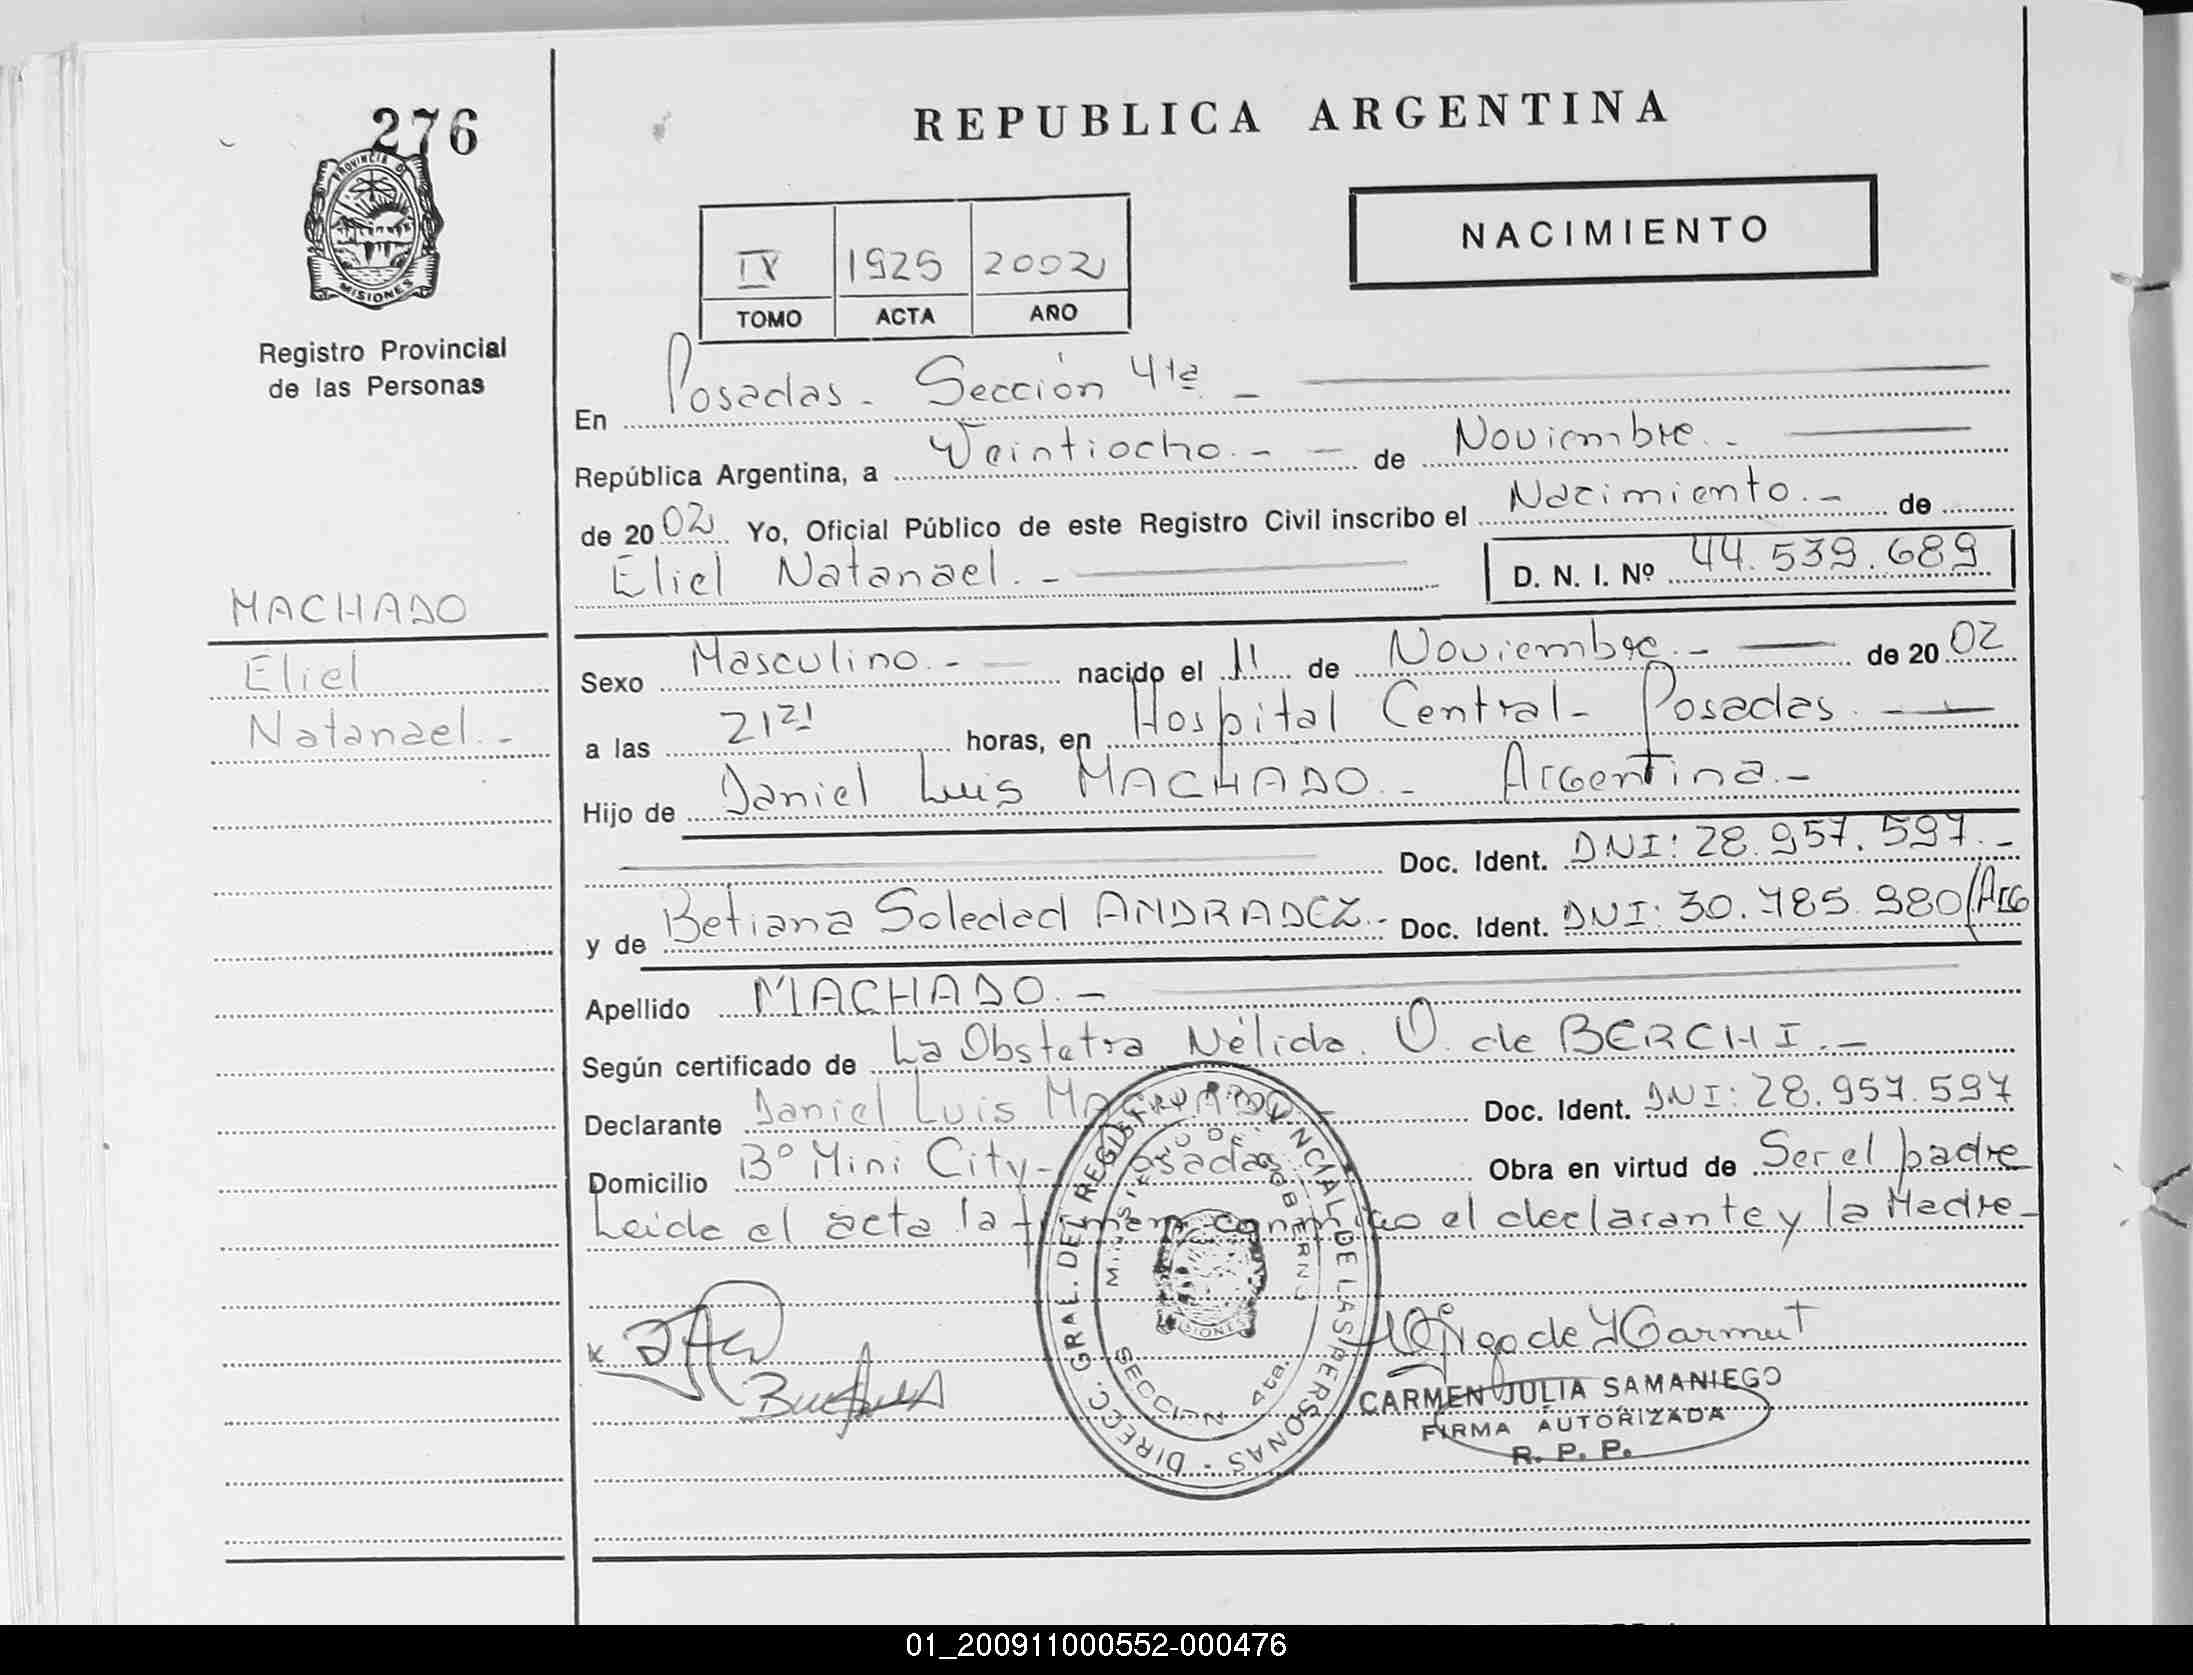 276
PROVINCIA DE
MISIONES
Registro Provincial
de las Personas
MACHADO
Eliel
Natanael.-
REPUBLICA ARGENTINA
NACIMIENTO
IV 1925 2002
TOMO ACTA AÑO
En Posadas - Sección 4ta -
República Argentina, a Veintiocho.- - de Noviembre.-
de 2002 Yo, Oficial Público de este Registro Civil inscribo el Nacimiento.- de
Eliel Natanael.- D. N. I. Nº 44.539.689
Sexo Masculino.- nacido el 11 de Noviembre.- de 2002
a las 21 21 horas, en Hospital Central - Posadas.
Hijo de Daniel Luis MACHADO.- Argentina.-
Doc. Ident. DNI: 28.957.597.-
y de Betiana Soledad ANDRADEZ.- Doc. Ident. DNI: 30.785.980/Arg
Apellido MACHADO.-
Según certificado de La Obstetra Nélida. O. de BERCHI.-
Declarante Daniel Luis MACHADO.- Doc. Ident. DNI: 28.957.597
Domicilio Bº Mini City - Posadas Obra en virtud de Ser el padre
Leida el acta la firman conmigo el declarante y la Madre-
DIRECC. GRAL. DEL REGISTRO PROVINCIAL DE LAS PERSONAS -
MINISTERIO DE GOBIERNO
MISIONES
SECCION 4ta.
CARMEN JULIA SAMANIEGO
FIRMA AUTORIZADA
R. P. P.
01_200911000552-000476